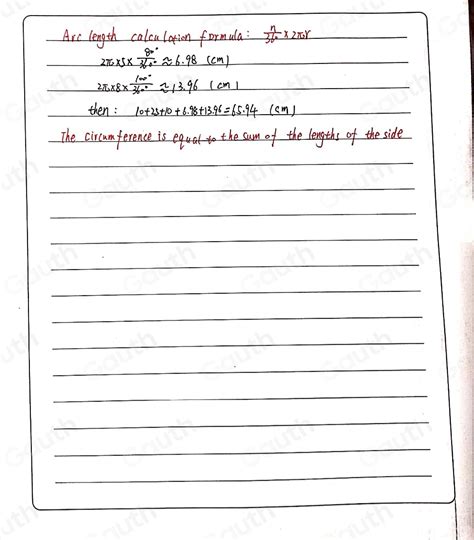 Arc length calculation formula: n/360° × 2πr
2π×5× 80°/360° ≈ 6.98 (cm)
2π×8× 100°/360° ≈ 13.96 (cm)
then: 10+25+10+6.98+13.96=65.94 (cm)
The circumference is equal to the sum of the lengths of the side